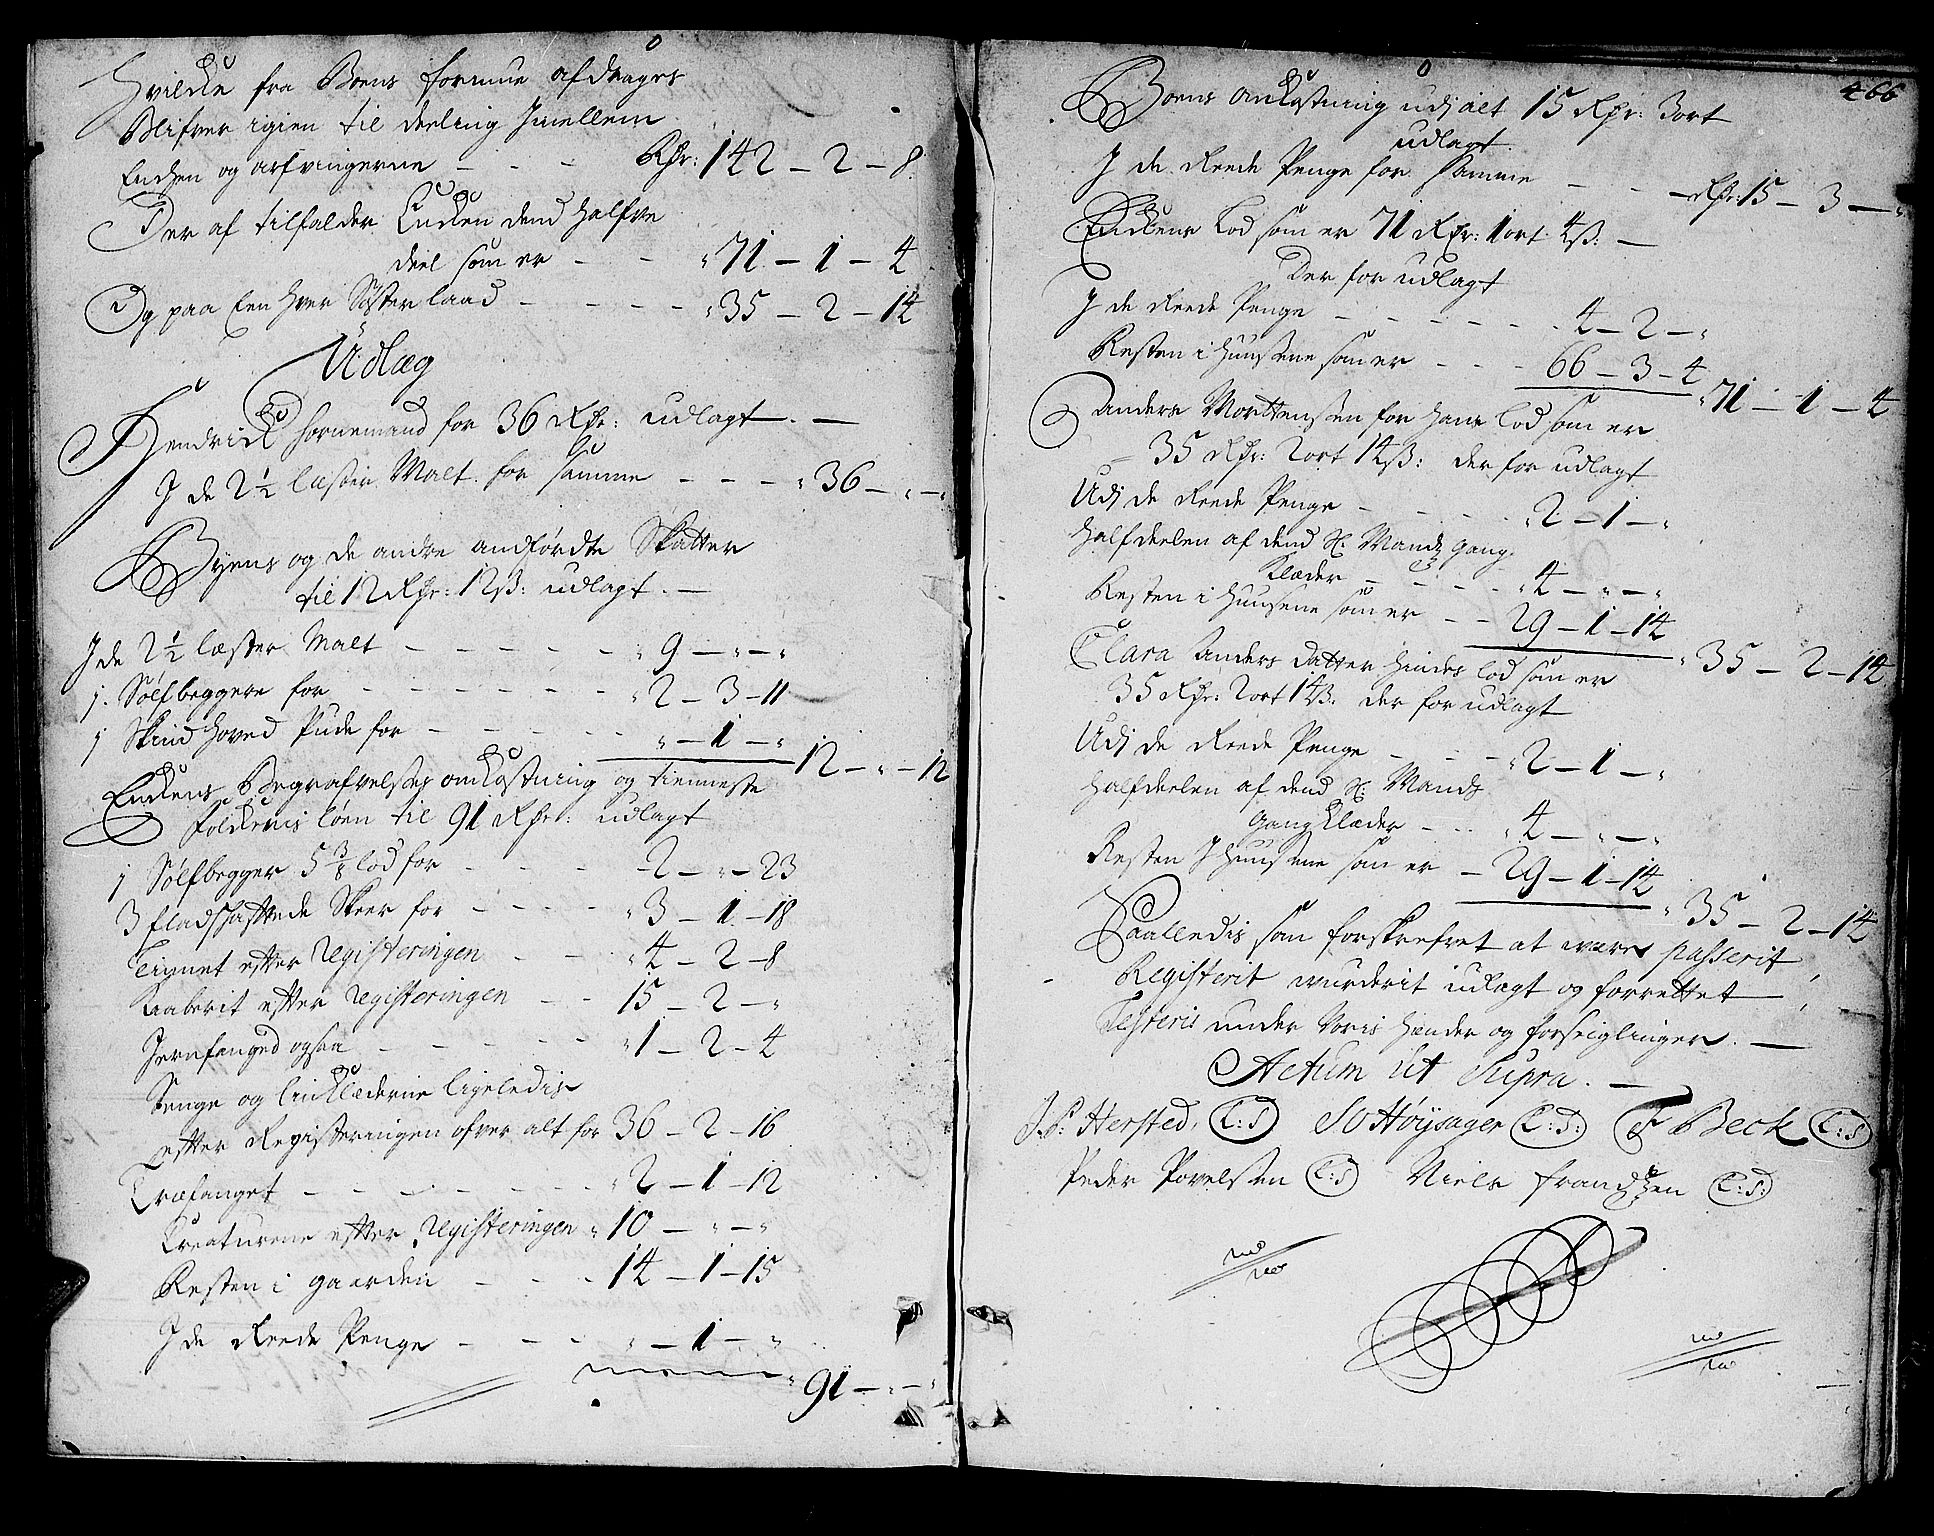 Hvilcke fra Boens formue afdrages
Blifver igien til deeling Imellem
Encken og arfvingerne - - Rdr: 142 - 2 - 8
Der af tilfalder Encken dend halfve
deel som er - - " 71 - 1 - 4
Og paa Een hver Søster laad - - - - " 35 - 2 - 14
Udlæg
Hendrick Hornemand for 36 Rdr: udlagt. -
I de 2 1/2 læster Malt for samme - - - " 36 - " - "
Byens og de andre andførdte Skatter
til 12 Rdr: 12 ß: udlagt. -
I de 2 1/2 læster Malt - - - - - " 9 - " - "
1. Sølfbeggere for - - - - - - " 2 - 3 - 11
1 Skind hoved Pude for - - - - - " - 1 - "
12 - " - 12
Enckens Begrafvelses omkostning og tienneste
folckenis løen til 91 Rdr: udlagt
1 Sølfbegger 5 3/8 lod for - - - - 2 - " - 23
3 fladschattede Skeer for - - - - " 3 - 1 - 18
Tignet efter registeringen - - " 4 - 2 - 8
Kaaberit efter registeringen - - 15 - 2 - "
Jernfanged ogsaa - - - - - " 1 - 2 - 4
Senge og linklæderne ligeledis
efter Registeringen ofver alt for 36 - 2 - 16
Træfanget - - - - - - - " 2 - 1 - 12
Creaturene efter registeringen " 10 - " - "
Resten i gaarden - - - 14 - 1 - 15
I de Reede Penge - - - " - 1 - "
91 - " - "
466
Boens omkostning udi alt 15 Rdr: 3 ort
udlagt
I de Reede Penge for samme - - - Rdr: 15 - 3 - "
Enckens Lod som er 71 Rdr: 1 ort 4 ß: -
Der for udlagt
I de Reede Penge - - - - - - 4 - 2 - "
Resten i Huusene som er - - - 66 - 3 - 4
" 71 - 1 - 4
Anders Morttensen for hans lod som er
- 35 Rdr: 2 ort 14 ß: der for udlagt
Udi de Reede Penge - - - - - " 2 - 1 - "
Halfdeelen af dend Sl: Mands gang
Klæder - - - - " 4 - " - "
Resten i Huusene som er - - 29 - 1 - 14
" 35 - 2 - 14
Clara Anders datter hindes lod som er
35 Rdr: 2 ort 14 ß. der for udlagt
Udi de Reede Penge - - - - " 2 - 1 - "
Halfdeelen af dend Sl: Mands
Gang Klæder - - - " 4 - " - "
Resten I Huusene som er - 29 - 1 - 14
" 35 - 2 - 14
Saalledis som forskrefvet at være passerit
Registerit wurderit udlagt og forrettet
Testeris under Voris Hænder og forseiglinger. -
Actum Ut Supra. -
J. P: Hersted, (L:S) SO Høysager (L:S:) F Beck (L:S)
Peder Povelsen (L:S) Niels frandzen (L:S:)